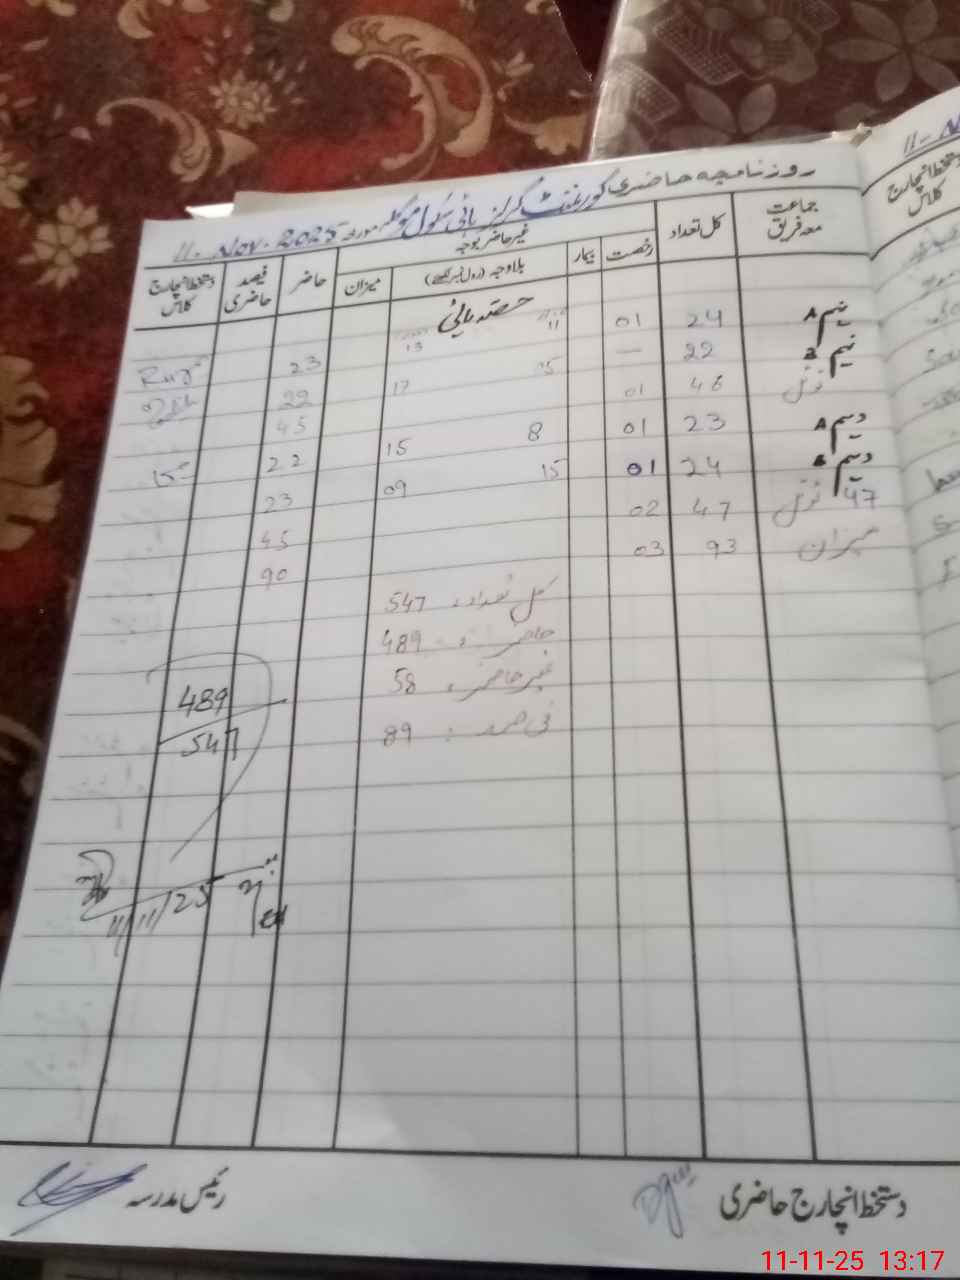 روزنامچہ حاضری گورنمنٹ گرلز ہائی سکول مورخہ 11-Nov-2025
جماعت معہ فریق کل تعداد رخصت بیمار غیر حاضر بوجہ بلاوجہ (رول نمبر لکھیے) میزان حاضر فیصد حاضری دستخط انچارج کلاس
حصہ ہائی
نہم A 24 01 11 13 23
نہم B 22 — 15 17 22
ٹوٹل 46 01 45
دہم A 23 01 8 15 22
دہم B 24 01 15 09 23
47 ٹوٹل 47 02 45
میزان 93 03 90
کل تعداد : 547
حاضر : 489
غیر حاضر : 58
فی صد : 89
489
547
11/11/25
دستخط انچارج حاضری
رئیس مدرسہ
11-11-25 13:17
11-N
دستخط انچارج کلاس